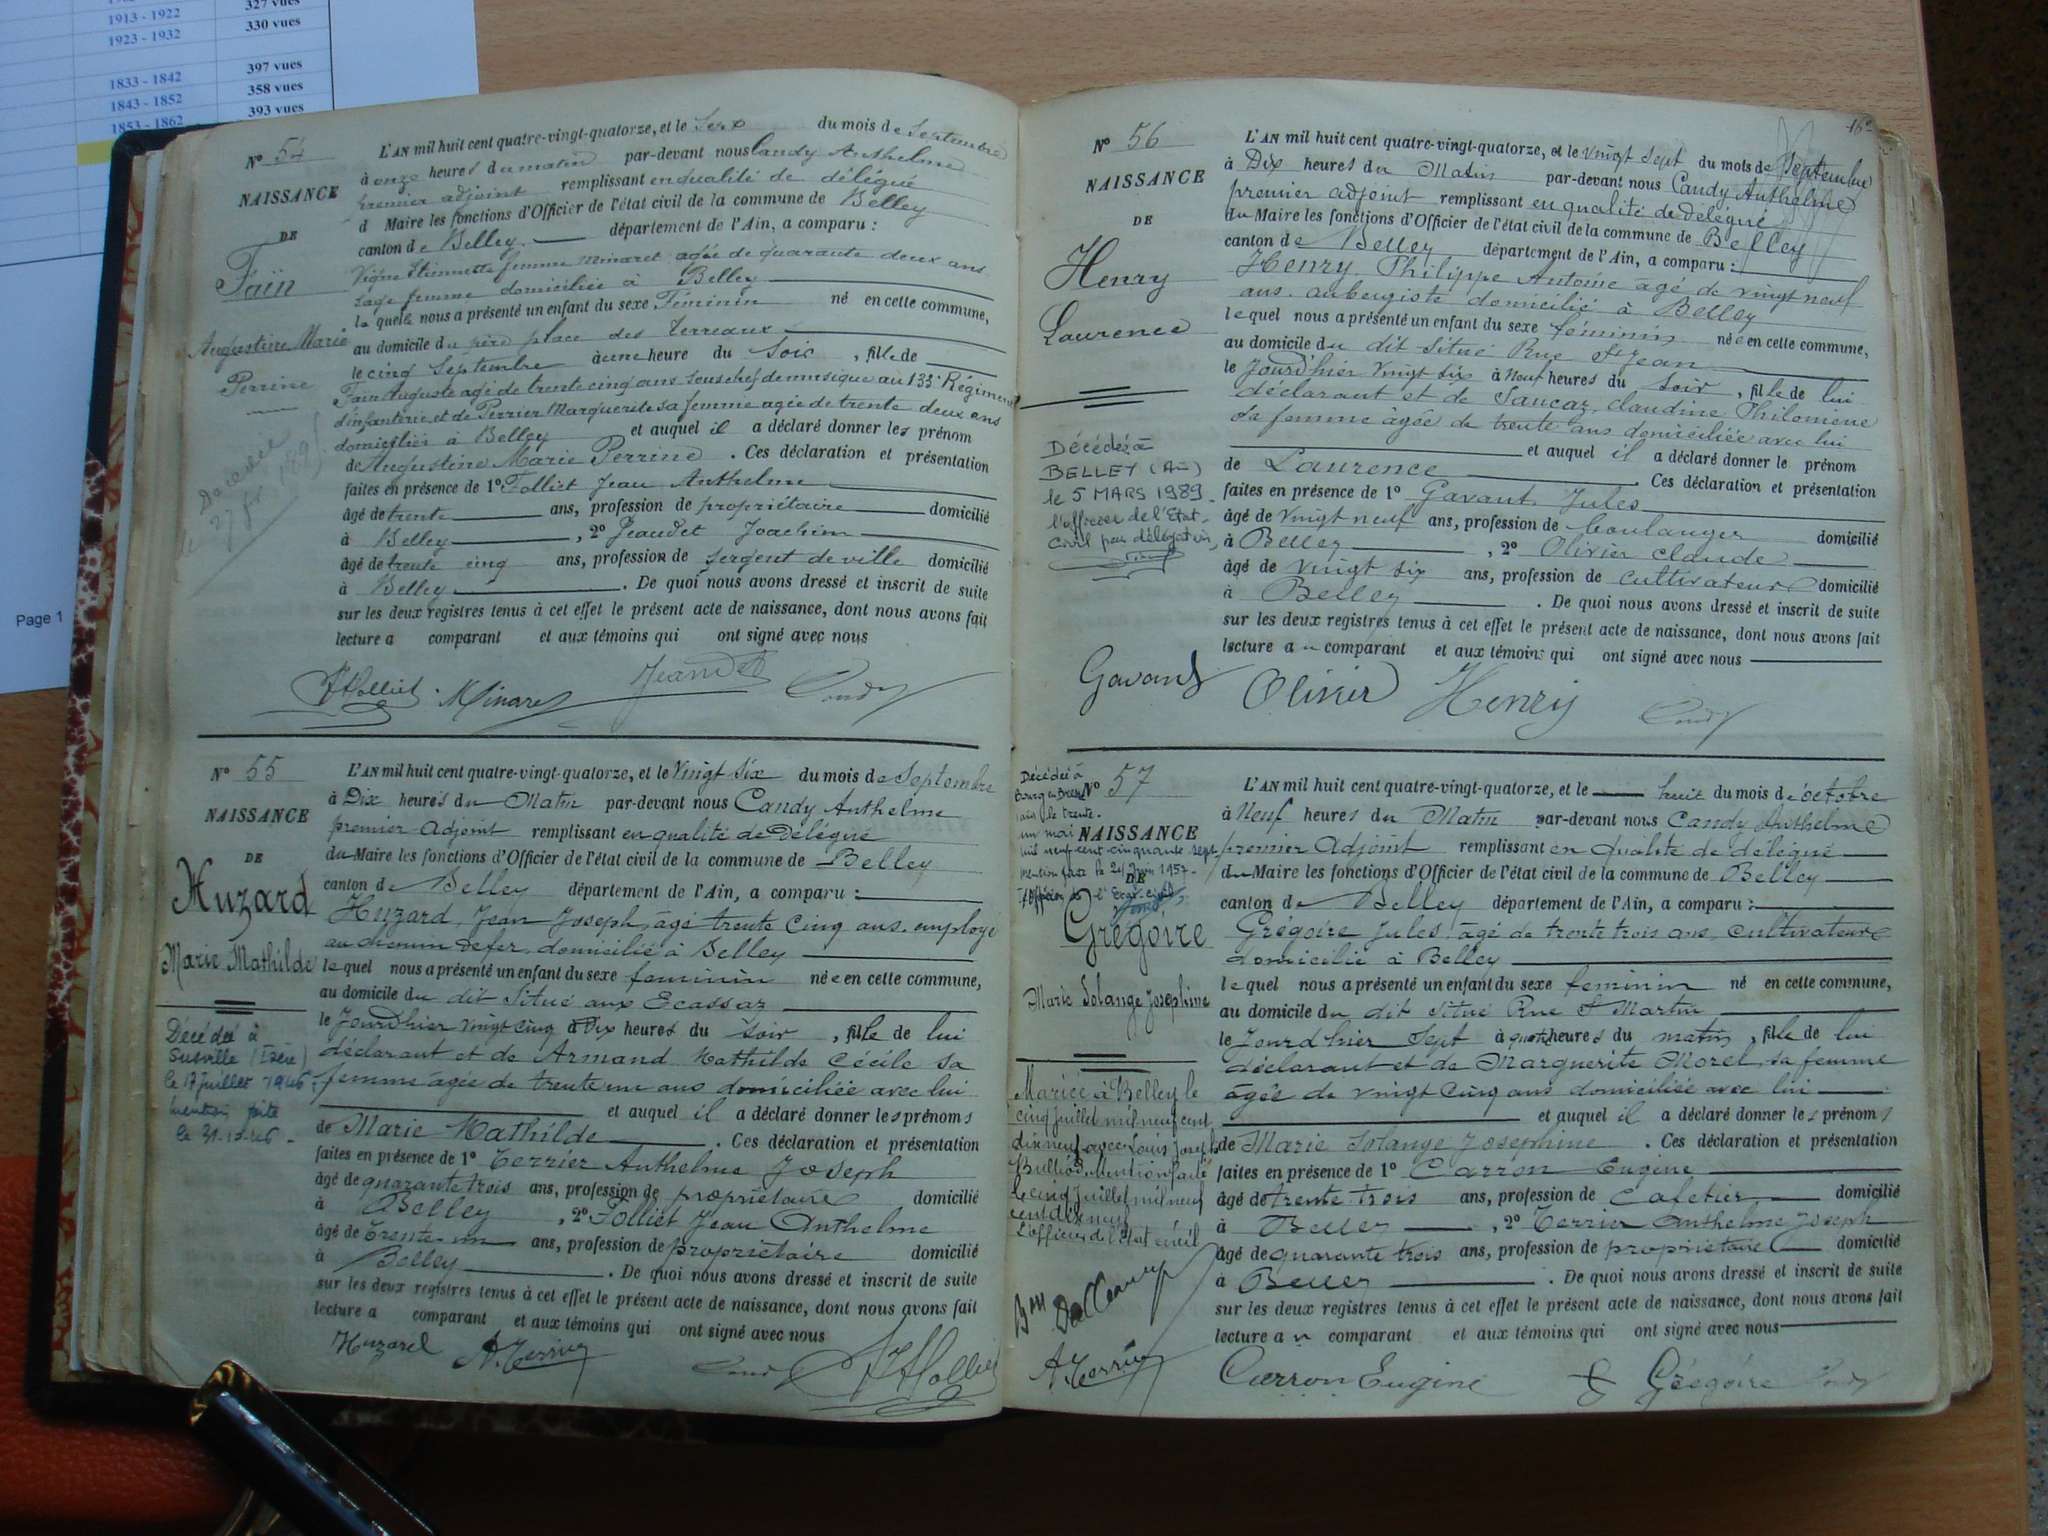 327 vues
1913 - 1922
330 vues
1923 - 1932
397 vues
1833 - 1842
358 vues
1843 - 1852
393 vues
1853 - 1862
Page 1
N° 54
NAISSANCE
DE
Fain
Augustine Marie
Perrine
Décédée
L'AN mil huit cent quatre-vingt-quatorze, et le du mois de Septembre
à onze heures du matin par-devant nous Candy Anthelme
premier adjoint remplissant en qualité de délégué
d Maire les fonctions d'Officier de l'état civil de la commune de Belley
canton de Belley département de l'Ain, a comparu :
Vigne Etiennette femme Minaret agée de quarante deux ans
sage femme domiciliée à Belley
la quelle nous a présenté un enfant du sexe Féminin né en cette commune,
au domicile du père place des terreaux
le cinq Septembre à une heure du Soir , fille de
Fain Auguste agé de trente cinq ans sous chef de musique au 133e Régiment
d'infanterie, et de Perrier Marguerite sa femme agée de trente deux ans
domiciliés à Belley et auquel il a déclaré donner les prénom
de Augustine Marie Perrine . Ces déclaration et présentation
faites en présence de 1° Folliet Jean Anthelme
âgé de trente ans, profession de propriétaire domicilié
à Belley , 2° Jeandet Joachim
âgé de trente cinq ans, profession de sergent de ville domicilié
à Belley . De quoi nous avons dressé et inscrit de suite
sur les deux registres tenus à cet effet le présent acte de naissance, dont nous avons fait
lecture a comparant et aux témoins qui ont signé avec nous
JFolliet Minaret Jeandet Candy
N° 55
NAISSANCE
DE
Huzard
Marie Mathilde
Décédée à
Susville (Isère)
le 17 juillet 1946.
Mention faite
le 31-10-46 -
L'AN mil huit cent quatre-vingt-quatorze, et le Vingt Six du mois de Septembre
à Dix heures du Matin par-devant nous Candy Anthelme
premier Adjoint remplissant en qualité de Délégué
du Maire les fonctions d'Officier de l'état civil de la commune de Belley
canton de Belley département de l'Ain, a comparu :
Huzard, Jean Joseph, agé trente Cinq ans. employé
au chemin de fer domicilié à Belley
le quel nous a présenté un enfant du sexe feminin née en cette commune,
au domicile du dit Situé aux Ecassaz
le Jourd'hier vingt cinq à Dix heures du Soir , fille de lui
déclarant et de Armand Mathilde Cécile sa
femme agée de trente un ans domiciliée avec lui
et auquel il a déclaré donner les prénoms
de Marie Mathilde . Ces déclaration et présentation
faites en présence de 1° Terrier Anthelme Joseph
âgé de quarante trois ans, profession de propriétaire domicilié
à Belley , 2° Folliet Jean Anthelme
âgé de Trente-un ans, profession de propriétaire domicilié
à Belley . De quoi nous avons dressé et inscrit de suite
sur les deux registres tenus à cet effet le présent acte de naissance, dont nous avons fait
lecture a comparant et aux témoins qui ont signé avec nous
Huzard A. Terrier Candy JFolliet
N° 56
NAISSANCE
DE
Henry
Laurence
Décédée à
BELLEY (Ain)
le 5 MARS 1989.
l'officier de l'Etat-
Civil par délégation,
L'AN mil huit cent quatre-vingt-quatorze, et le vingt sept du mois de Septembre
à Dix heures du Matin par-devant nous Candy Anthelme
premier adjoint remplissant en qualité de délégué
du Maire les fonctions d'Officier de l'état civil de la commune de Belley
canton de Belley département de l'Ain, a comparu :
Henry Philippe Antoine agé de vingt neuf
ans. aubergiste domicilié à Belley
le quel nous a présenté un enfant du sexe féminin née en cette commune,
au domicile du dit Situé Rue St Jean
le Jourd'hier vingt six à Neuf heures du soir , fille de lui
déclarant et de Saucaz, claudine Philomène
sa femme âgée de trente ans domiciliée avec lui
et auquel il a déclaré donner le prénom
de Laurence . Ces déclaration et présentation
faites en présence de 1° Gavant Jules
âgé de vingt neuf ans, profession de boulanger domicilié
à Belley , 2° Olivier claude
âgé de vingt six ans, profession de cultivateur domicilié
à Belley . De quoi nous avons dressé et inscrit de suite
sur les deux registres tenus à cet effet le présent acte de naissance, dont nous avons fait
lecture au comparant et aux témoins qui ont signé avec nous
Gavant Olivier Henry Candy
N° 57
Décédée à
Bourg en Bresse
(Ain) le trente-
un mai
mil neuf cent cinquante sept.
Mention faite le 24 Juin 1957-
l'Officier de l'Etat-civil
NAISSANCE
DE
Grégoire
Marie Solange Josephine
Mariée à Belley le
cinq juillet mil neuf cent
dix neuf avec Louis Joseph
Mention faite
le cinq juillet mil neuf
cent dix neuf
L'officier de l'état civil
L'AN mil huit cent quatre-vingt-quatorze, et le huit du mois de octobre
à Neuf heures du Matin par-devant nous Candy Anthelme
premier Adjoint remplissant en qualité de délégué
du Maire les fonctions d'Officier de l'état civil de la commune de Belley
canton de Belley département de l'Ain, a comparu :
Grégoire Jules, agé de trente trois ans, cultivateur
domicilié à Belley
le quel nous a présenté un enfant du sexe feminin né en cette commune,
au domicile du dit Situé Rue St Martin
le Jourd'hier Sept à quatre heures du matin , fille de lui
déclarant et de Marguerite Morel, sa femme
âgée de vingt Cinq ans domiciliée avec lui
et auquel il a déclaré donner les prénoms
de Marie Solange Josephine . Ces déclaration et présentation
faites en présence de 1° Carron Eugine
âgé de trente trois ans, profession de cafetier domicilié
à Belley , 2° Terrier Anthelme Joseph
âgé de quarante trois ans, profession de propriétaire domicilié
à Belley . De quoi nous avons dressé et inscrit de suite
sur les deux registres tenus à cet effet le présent acte de naissance, dont nous avons fait
lecture au comparant et aux témoins qui ont signé avec nous
A. Terrier Carron Eugine Grégoire Candy